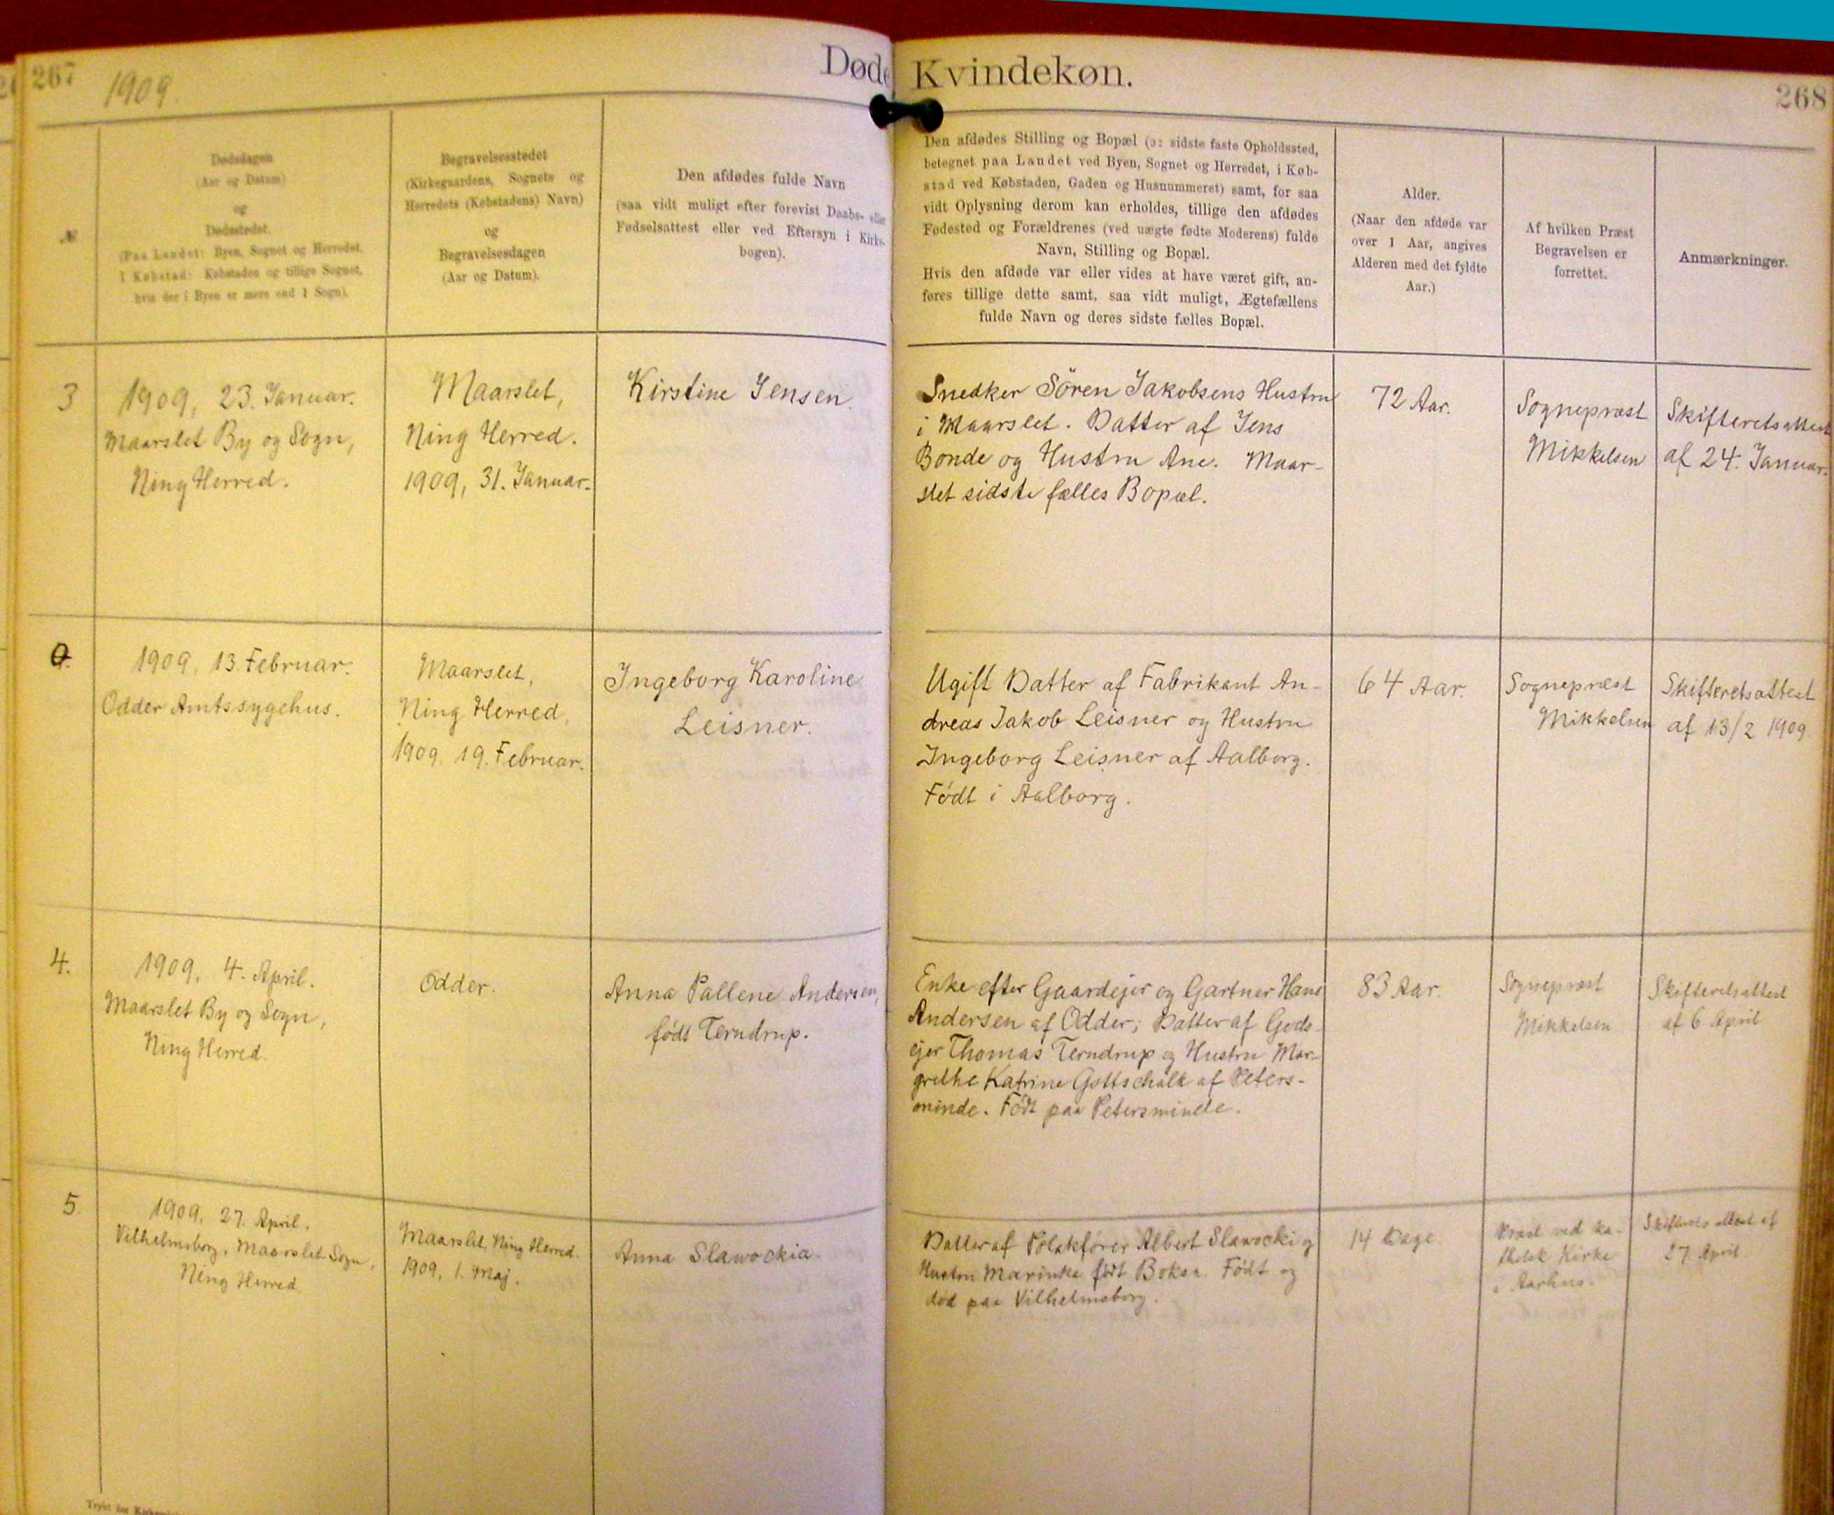 267
1909.
Døde
Kvindekøn.
268
№
Dødsdagen
(Aar og Datum)
og
Dødsstedet.
(Paa Landet: Byen, Sognet og Herredet.
I Købstad: Købstaden og tillige Sognet,
hvis der i Byen er mere end 1 Sogn).
Begravelsesstedet
(Kirkegaardens, Sognets og
Herredets (Købstadens) Navn)
og
Begravelsesdagen
(Aar og Datum).
Den afdødes fulde Navn
(saa vidt muligt efter forevist Daabs- eller
Fødselsattest eller ved Eftersyn i Kirke-
bogen).
Den afdødes Stilling og Bopæl (ɔ: sidste faste Opholdssted,
betegnet paa Landet ved Byen, Sognet og Herredet, i Køb-
stad ved Købstaden, Gaden og Husnummeret) samt, for saa
vidt Oplysning derom kan erholdes, tillige den afdødes
Fødested og Forældrenes (ved uægte fødte Moderens) fulde
Navn, Stilling og Bopæl.
Hvis den afdøde var eller vides at have været gift, an-
føres tillige dette samt, saa vidt muligt, Ægtefællens
fulde Navn og deres sidste fælles Bopæl.
Alder.
(Naar den afdøde var
over 1 Aar, angives
Alderen med det fyldte
Aar.)
Af hvilken Præst
Begravelsen er
forrettet.
Anmærkninger.
3
1909, 23. Januar.
Maarslet By og Sogn,
Ning Herred.
Maarslet,
Ning Herred.
1909, 31. Januar.
Kirstine Jensen.
Snedker Sören Jakobsens Hustru
i Maarslet. Datter af Jens
Bonde og Hustru Ane. Maar-
slet sidste fælles Bopæl.
72 Aar.
Sognepræst
Mikkelsen
Skifteretsattest
af 24. Januar.
1909, 13. Februar.
Odder Amtssygehus.
Maarslet,
Ning Herred,
1909, 19. Februar.
Ingeborg Karoline
Leisner.
Ugift Datter af Fabrikant An-
dreas Jakob Leisner og Hustru
Ingeborg Leisner af Aalborg.
Födt i Aalborg.
64 Aar.
Sognepræst
Mikkelsen
Skifteretsattest
af 13/2 1909
4.
1909, 4. April.
Maarslet By og Sogn,
Ning Herred.
Odder.
Anna Pallene Andersen,
födt Terndrup.
Enke efter Gaardejer og Gartner Hans
Andersen af Odder; Datter af Gods-
ejer Thomas Terndrup og Hustru Mar-
grethe Katrine Gottschalk af Peters-
minde. Födt paa Petersminde.
83 Aar.
Sognepræst
Mikkelsen
Skifteretsattest
af 6 April
5
1909, 27. April.
Vilhelmsborg, Maarslet Sogn,
Ning Herred.
Maarslet, Ning Herred.
1909, 1. Maj.
Anna Slawockia.
Datter af Polakförer Albert Slawocki og
Hustru Marinka födt Boksa. Födt og
död paa Vilhelmsborg.
14 Dage.
Præst ved ka-
tholsk Kirke
i Aarhus.
Skifterets attest af
27 April